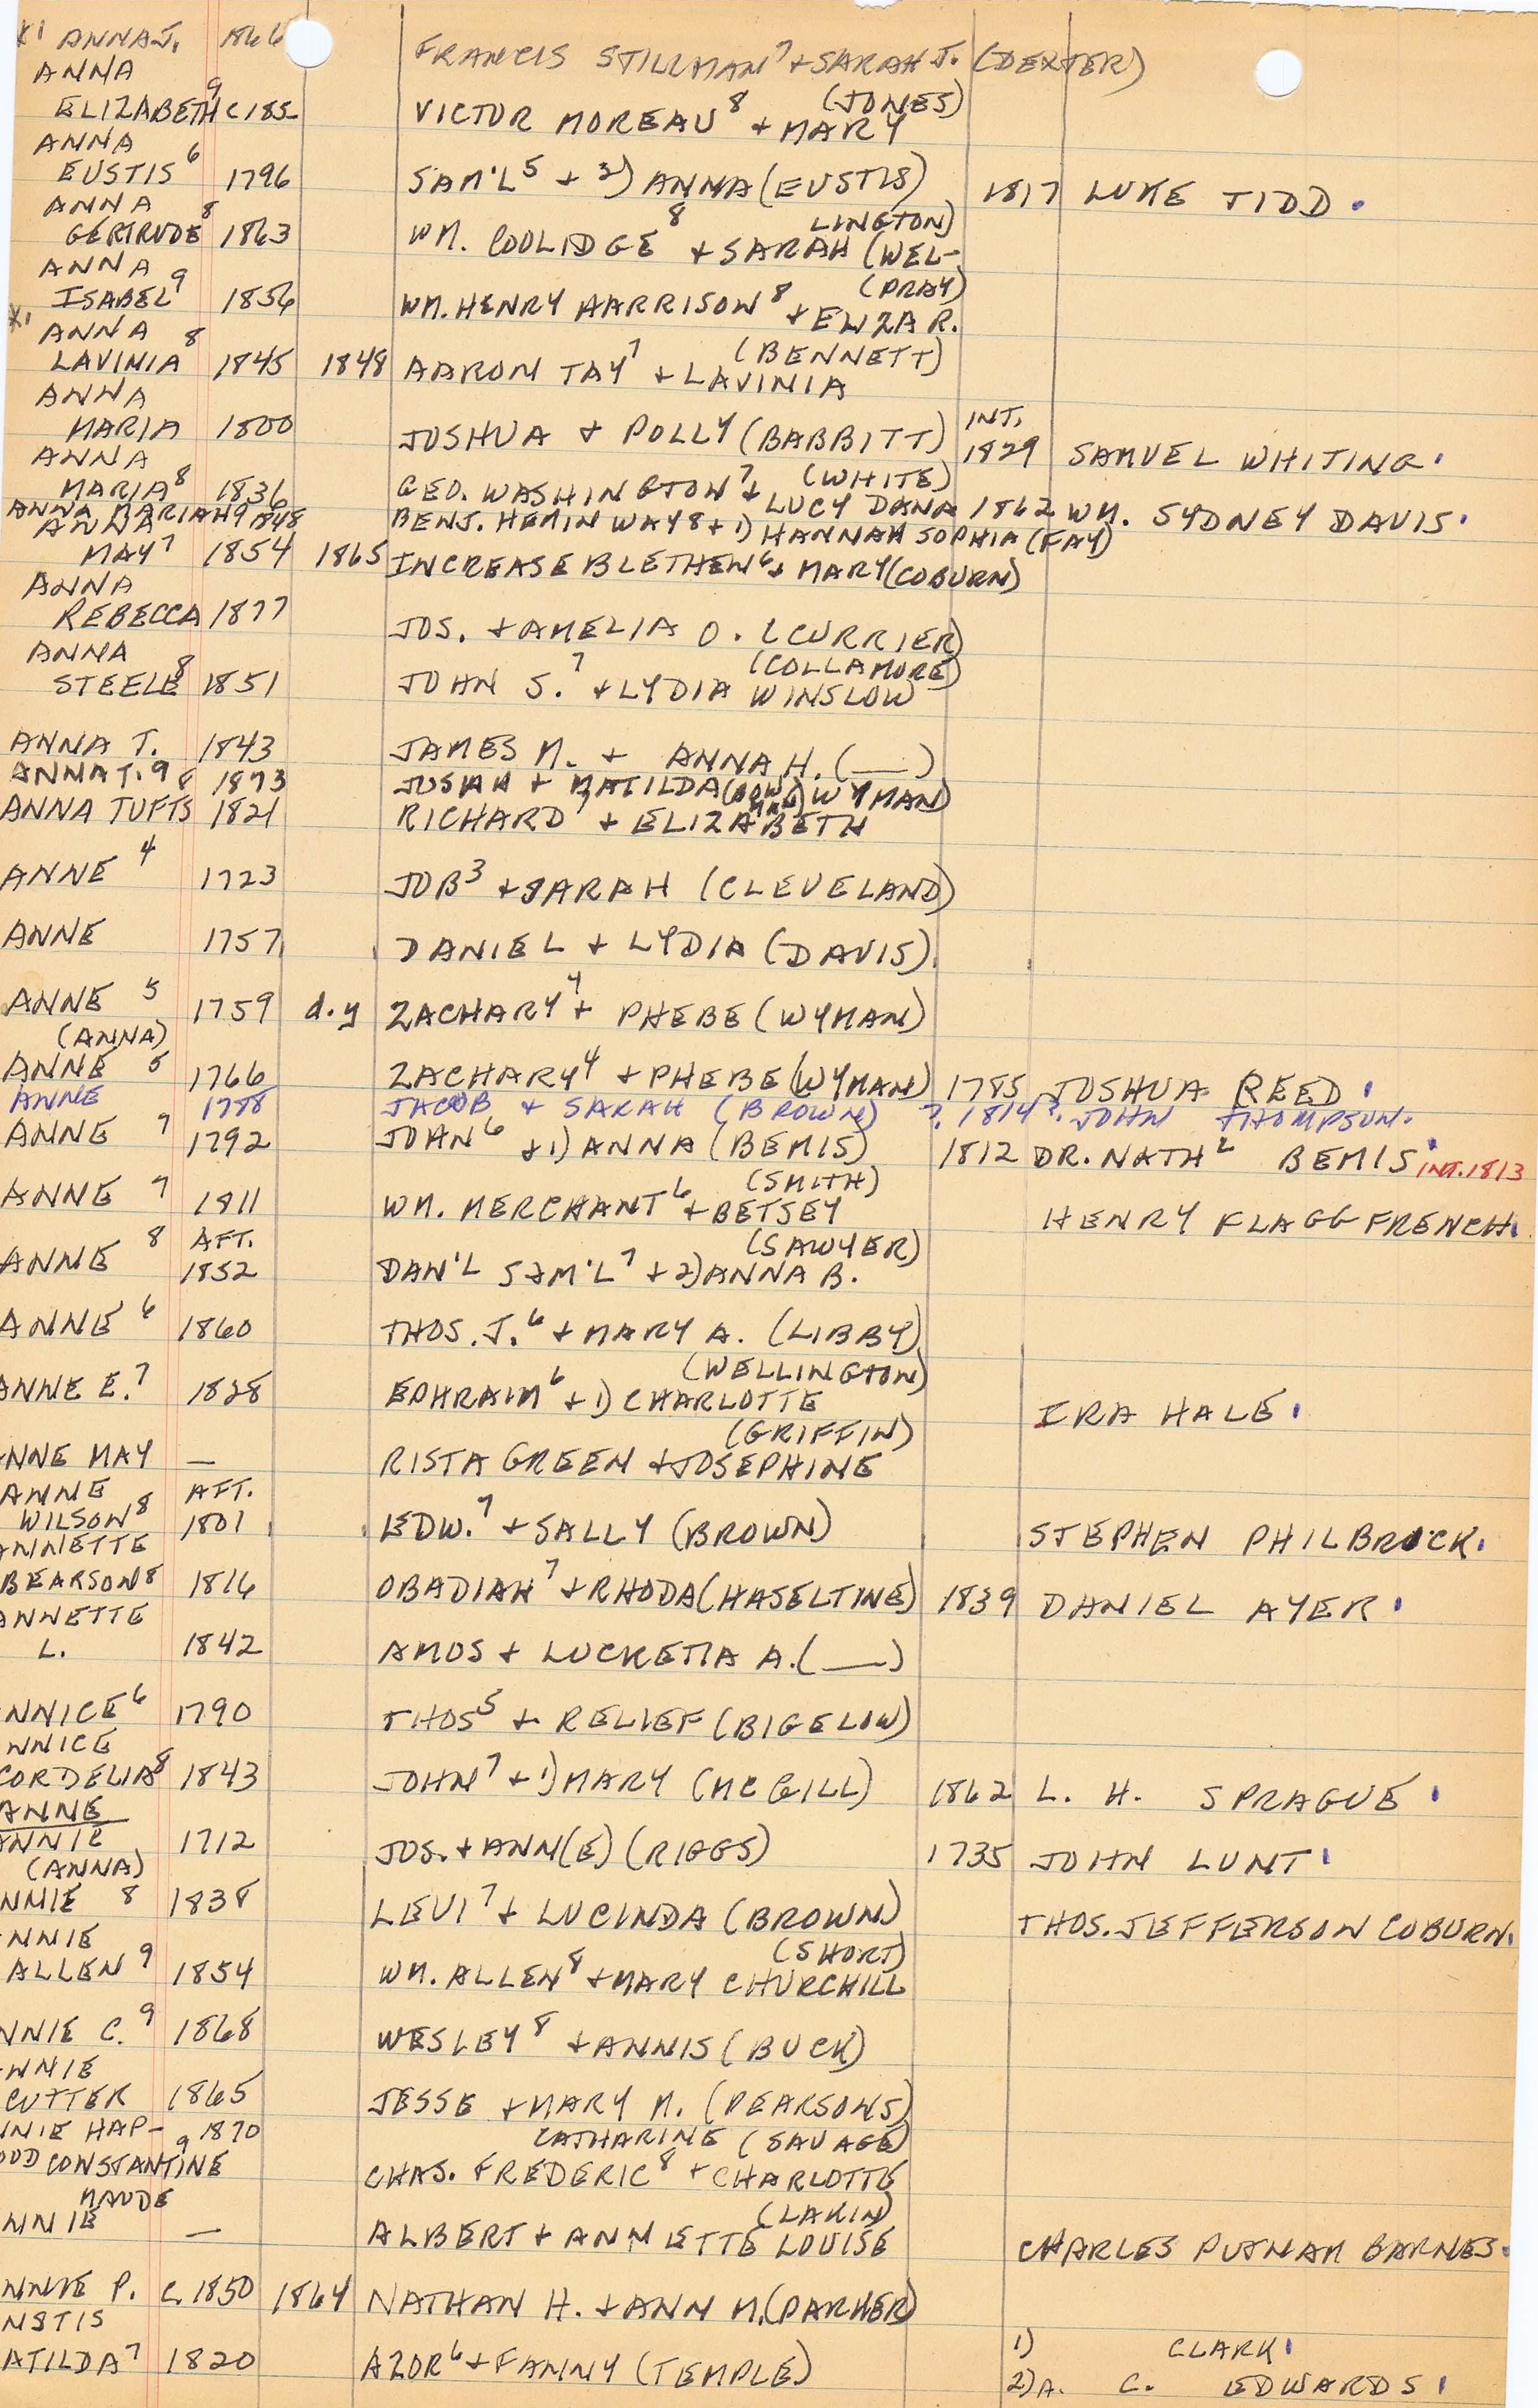 X1 ANNA J. 1866 FRANCIS STILLMAN7 + SARAH J. (DEXTER)
ANNA
ELIZABETH9 C185 VICTOR MOREAU8 + MARY (JONES)
ANNA
EUSTIS6 1796 SAM'L5 + 3) ANNA (EUSTIS) 1817 LUKE TIDD.
ANNA LINGTON)
GERTRUDE8 1863 WM. COOLIDGE8 + SARAH (WEL-
ANNA (PRAY)
ISABEL9 1856 WM. HENRY HARRISON8 + ELIZA R.
X1 ANNA (BENNETT)
LAVINIA8 1845 1848 AARON TAY7 + LAVINIA
ANNA INT.
MARIA 1800 JOSHUA + POLLY (BABBITT) 1829 SAMUEL WHITING.
ANNA (WHITE)
MARIA8 1836 GEO. WASHINGTON7 + LUCY DANA 1862 WM. SYDNEY DAVIS.
ANNA MARIAH9 1848 BENJ. HEMINWAY8 + 1) HANNAH SOPHIA (FAY)
ANNA
MAY7 1854 1865 INCREASE BLETHEN6 + MARY (COBURN)
ANNA
REBECCA 1877 JOS. + AMELIA O. (CURRIER)
ANNA (COLLAMORE)
STEELE8 1851 JOHN S.7 + LYDIA WINSLOW
ANNA T. 1843 JAMES M. + ANNA H. (__)
ANNA T.9 1873 JOSIAH + MATILDA WYMAN
ANNA TUFTS8 1821 RICHARD7 + ELIZABETH
ANNE4 1723 JOB3 + SARAH (CLEVELAND)
ANNE 1757 DANIEL + LYDIA (DAVIS)
ANNE5 1759 d.y ZACHARY4 + PHEBE (WYMAN)
(ANNA)
ANNE5 1766 ZACHARY4 + PHEBE (WYMAN) 1785 JOSHUA REED.
ANNE 1788 JACOB + SARAH (BROWN) ?. 1814?. JOHN THOMPSON.
ANNE7 1792 JOHN6 + 1) ANNA (BEMIS) 1812 DR. NATHL BEMIS. INT. 1813
ANNE7 1811 WM. MERCHANT6 + BETSEY (SMITH) HENRY FLAGG FRENCH.
AFT. (SAWYER)
ANNE8 1852 DAN'L SAM'L7 + 2) ANNA B.
ANNE6 1860 THOS. J.6 + MARY A. (LIBBY)
(WELLINGTON)
ANNE E.7 1828 EPHRAIM6 + 1) CHARLOTTE IRA HALE.
(GRIFFIN)
NNE MAY — RISTA GREEN + JOSEPHINE
ANNE AFT.
WILSON8 1801 EDW.7 + SALLY (BROWN) STEPHEN PHILBRICK.
ANNETTE
BEARSON8 1816 OBADIAH7 + RHODA (HASELTINE) 1839 DANIEL AYER.
ANNETTE
L. 1842 AMOS + LUCRETIA A. (__)
NNICE6 1790 THOS5 + RELIEF (BIGELOW)
NNICE
CORDELIA8 1843 JOHN7 + 1) MARY (MCGILL) 1862 L. H. SPRAGUE.
ANNE
ANNIE 1712 JOS. + ANN(E) (RIGGS) 1735 JOHN LUNT.
(ANNA)
NNIE8 1838 LEVI7 + LUCINDA (BROWN) THOS. JEFFERSON COBURN.
NNIE (SHORT)
ALLEN9 1854 WM. ALLEN8 + MARY CHURCHILL
NNIE C.9 1868 WESLEY8 + ANNIS (BUCK)
NNIE
CUTTER 1865 JESSE + MARY M. (PEARSONS)
NNIE HAP- 1870 CATHARINE (SAVAGE)
OOD CONSTANTINE9 CHAS. FREDERIC8 + CHARLOTTE
MAUDE (LAKIN)
NNIE — ALBERT + ANNETTE LOUISE CHARLES PUTNAM BARNES.
NNIE P. C. 1850 1864 NATHAN H. + ANN M. (PARKER)
NSTIS 1) CLARK.
ATILDA7 1820 AZOR6 + FANNY (TEMPLE) 2) A. C. EDWARDS.